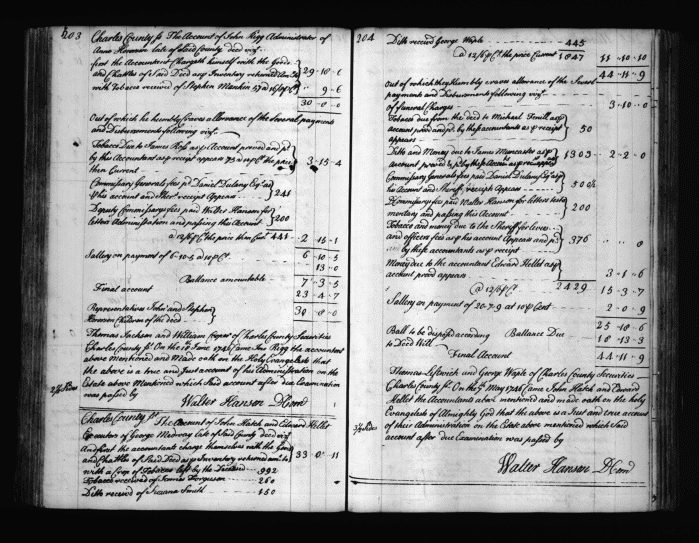 203
Charles County ss The Account of John Rigg Administrator of
Anne late of said County deced viz.
first the Accountant Chargeth himself with the Goods
and Chattles of said Deced asp Inventory returned 29 - 10 - 6
with Tobacco received of Stephen Mankin 9 - 6
30 - 0 - 0
Out of which he humbly Craves allowance of the Several payments
and Disbursements following viz.
Tobacco Due to James asp Account proved and pd
by this Accountant asp receipt appears the price 3 - 15 - 4
then Current
Commissary Generals fees pd Daniel Dulany Esqr as
p his account and Sher receipt Appears 241
Deputy Commissarys fees paid Walter Hanson for
letters Administration and passing this Account 200
a 12/6 pCt the price then Curt 441 2 - 15 - 1
Sallery on payment of 6-10-5 a 10 pCt 6 - 10 - 5
13 - 0
Ballance amountable 7 - 3 - 5
Final account 23 - 4 - 7
Representatives John and Stephen
Children of the deced 30 - 0 - 0
Thomas Jackson and William of Charles County Securities
Charles County ss. On the 10 June 1746 came John Rigg the accountant
above Mentioned and Made oath on the Holy Evangelists that
the above is a true and Just account of his Administration on the
Estate above Mentioned which Said account after due Examination
was passed by
Walter Hanson D Com
Charles County ss. The Account of John Hatch and Edward Hellet
Executors of George late of said County deced viz
And first the accountants charge themselves with the Goods
and Chattles of Said Deced asp Inventory returned 33 - 0 - 11
with a Crop of Tobacco left by the Deceased 992
Tobacco received of James Ferguson 260
Ditto received of Susana Smith 150
204
Ditto received George Waple 445
a 12/6 pCt the price Current 1847 11 - 10 - 10
44 - 11 - 9
Out of which they Humbly craves allowance of the Several
payments and Disbursements following viz.
of funeral Charges 3 - 10 - 0
Tobacco due from the deced to Michael asp
account proved and pd by the accountants asp receipt 50
appears
Ditto and Money due to James asp
Account proved & pd by the Accountants asp receipt appears 1303 2 - 2 - 0
Commissary Generals fees paid Daniel Dulany Esqr asp
his Account and Sheriffs receipt Appears 500
Commissary fees paid Walter Hanson for letters testa
mentary and passing this Account 200
Tobacco and money due to the Sheriff for levies
and officers fees asp his account Appears and pd 376
by these accountants asp receipt
Money due to the accountant Edward Hellet asp
account proved appears 3 - 1 - 6
@ 12/6 pCt 2429 15 - 3 - 7
Sallery on payment of 20-7-9 at 10 pCent 2 - 0 - 9
25 - 18 - 6
Ball to be disposed according Ballance Due 18 - 13 - 3
to Deced Will
Final Account 44 - 11 - 9
Thomas and George Waple of Charles County Securities
Charles County ss. On the May 1746 came John Hatch and Edward
Hellet the Accountants above mentioned and made oath on the holy
Evangelists of Almighty God that the above is a Just and true account
of their Administration on the Estate above mentioned which said
account after due Examination was passed by
Walter Hanson D Com